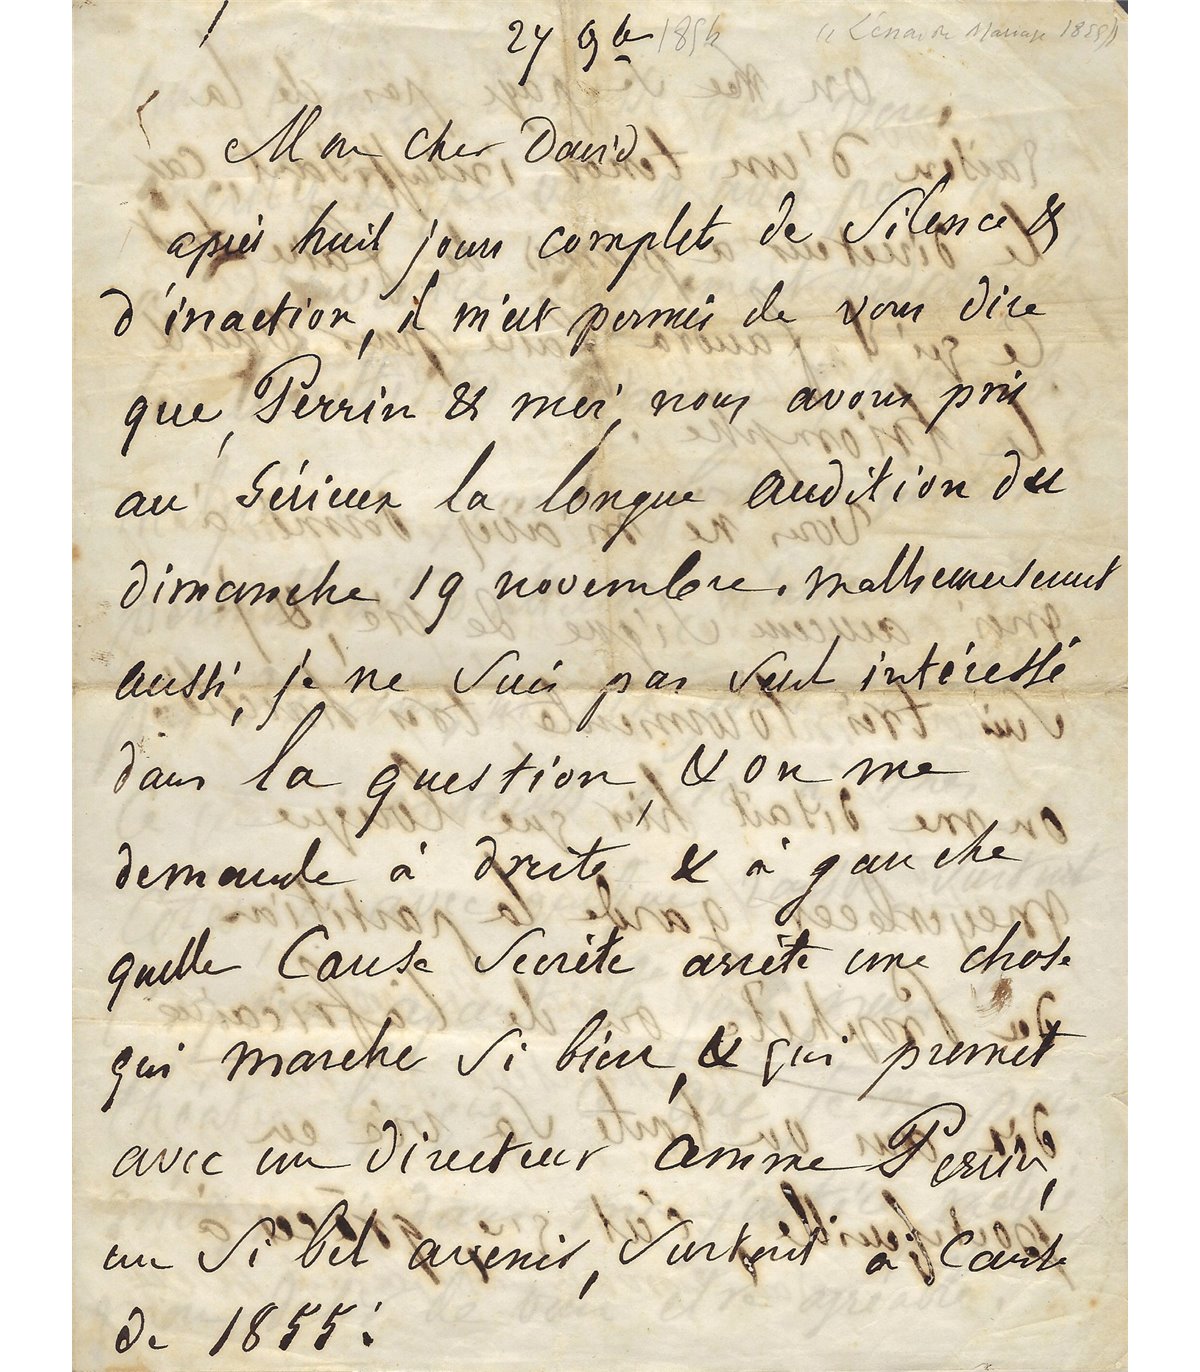 27 9bre 1854
Mon cher David
après huit jours complets de silence &
d'inaction, il m'est permis de vous dire
que, Perrin & moi, nous avons pris
au sérieux la longue audition du
dimanche 19 novembre. malheureusement
aussi, je ne suis pas seul intéressé
dans la question, & on me
demande à droite & à gauche
quelle cause secrète arrête une chose
qui marche si bien, & qui promet
avec un directeur comme Perrin,
un si bel avenir, surtout à cause
de 1855!